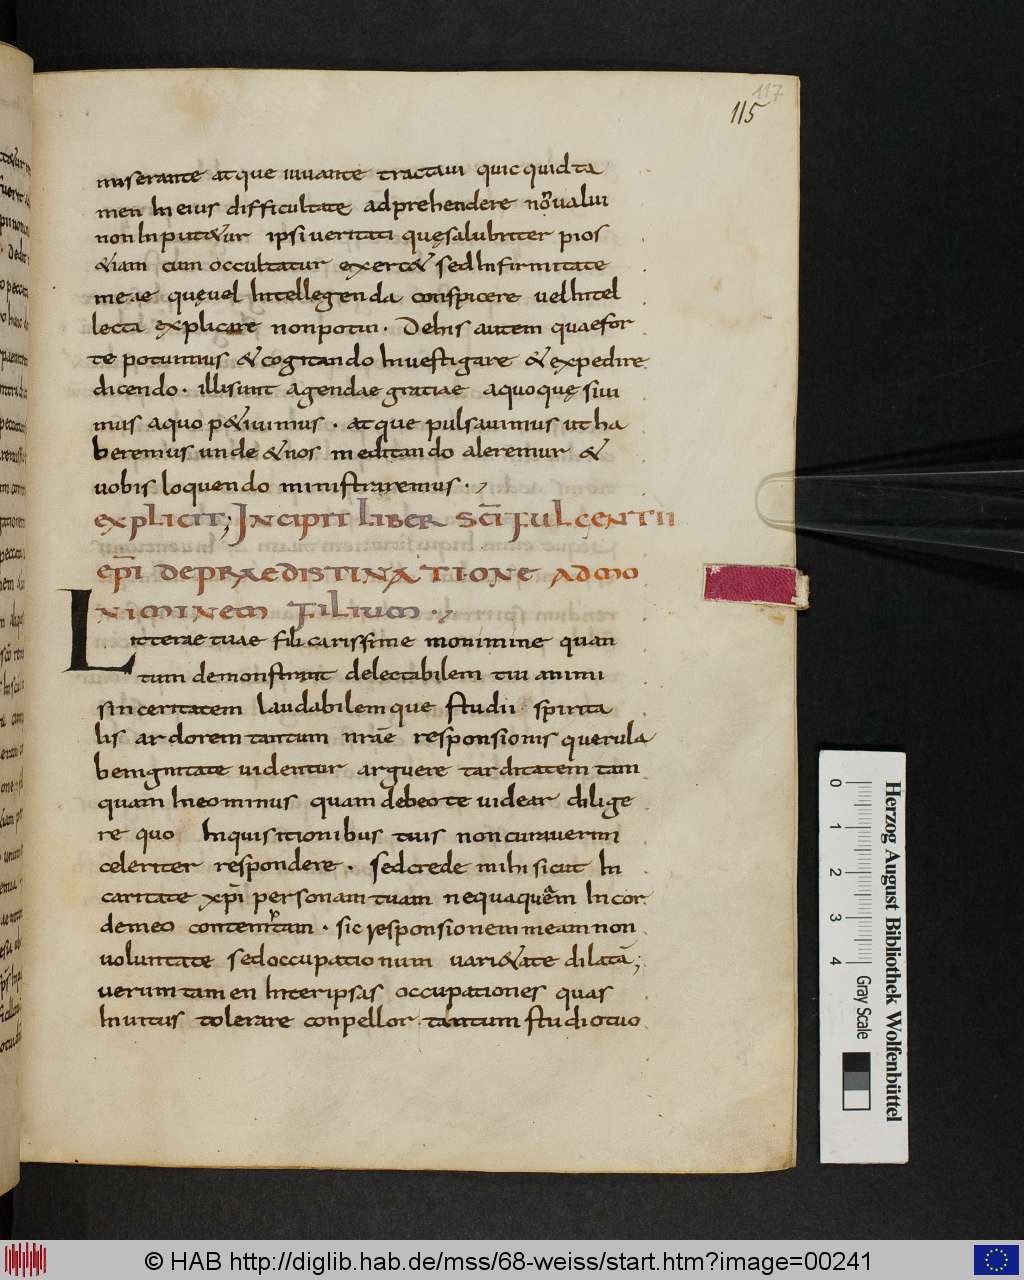 117
115
miserante atque iuuante tractaui quicquid ta
men In eius difficultate adprehendere n ualui
non Inputetur ipsi ueritati quę salubriter pios
&iam cum occultatur exerc& sed Infirmitate
meae quę uel Intellegenda conspicere uel Intel
lecta explicare non potui · De his autem quae for
te potuimus & cogitando Inuestigare & expedire
dicendo · illi sunt agendae gratiae a quo quęsiui
mus a quo p&iuimus · atque pulsauimus ut ha
beremus unde & nos meditando aleremur &
uobis loquendo ministraremus ·
explicit; Incipit liber sc̄i fulgentii
ep̄i de praedistinatione ad mo
nimimem filium ·
Litterae tuae fili carissime monimine quan
tum demonstrant delectabilem tui animi
sinceritatem laudabilemque studii spirita
lis ardorem tantum nr̄ae responsionis querula
benignitate uidentur arguere tarditatem tam
quam In eo minus quam debeo te uidear dilige
re quo Inquisitionibus tuis non curauerim
celeriter respondere · sed crede mihi sicut In
caritate xp̄i personam tuam nequaquam In cor
de meo contemptam · sic responsionem meam non
uoluntate sed occupationum uari&ate dilatā;
uerum tamen Inter ipsas occupationes quas
Inuitus tolerare conpellor tantum studio tuo
0 1 2 3 4
Herzog August Bibliothek Wolfenbüttel
Gray Scale
© HAB http://diglib.hab.de/mss/68-weiss/start.htm?image=00241